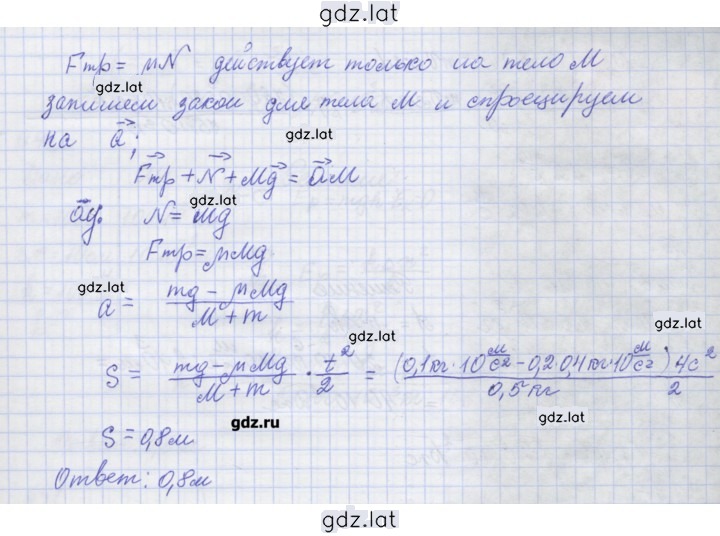 gdz.lat
Fтр = μN действует только на тело M
gdz.lat
запишем закон для тела M и спроецируем
на a⃗; gdz.lat
F⃗тр + N⃗ + Mg⃗ = a⃗M
gdz.lat
oy: N = Mg
Fтр = μMg
gdz.lat
a = (mg − μMg)/(M + m)
gdz.lat
S = (mg − μMg)/(M + m) · t²/2 = (0,1кг · 10 м/с² − 0,2 · 0,4кг · 10 м/с²) 4с² / 0,5кг 2
gdz.ru gdz.lat
S = 0,8м
Ответ: 0,8м
gdz.lat